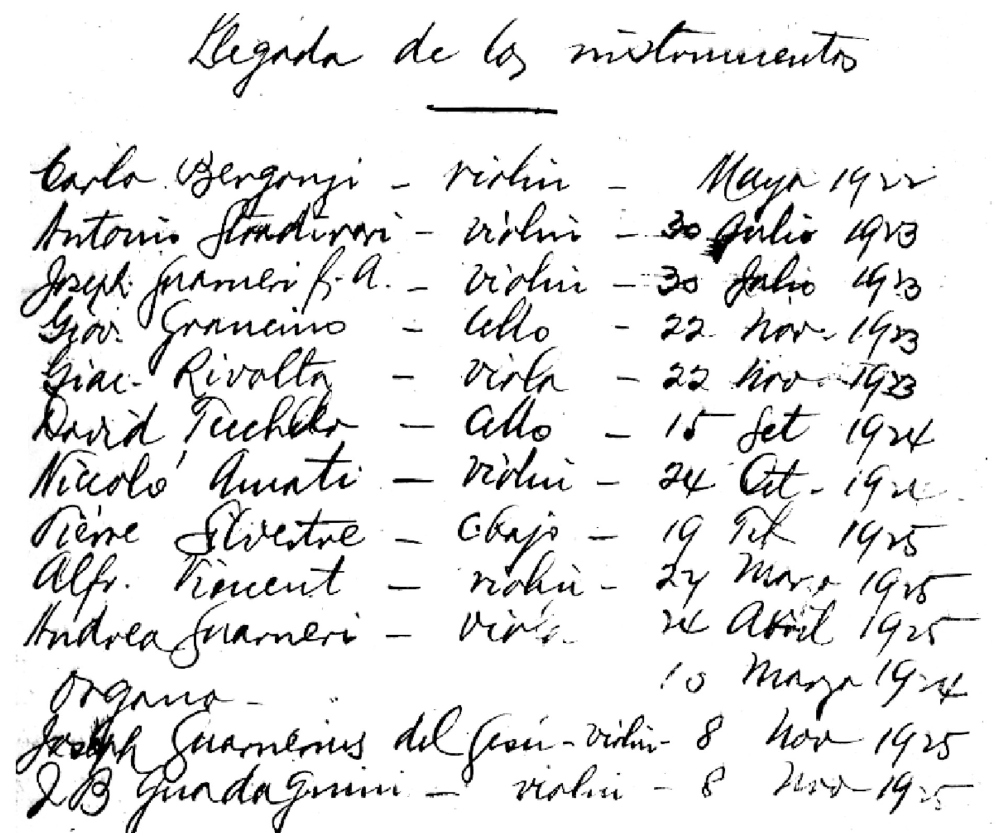 Llegada de los instrumentos
Carlo Bergonzi - violin - Mayo 1922
Antonio Stradivari - violin - 30 Julio 1923
Joseph Guarneri f. A. - violin - 30 Julio 1923
Giov. Grancino - cello - 22 Nov. 1923
Giac. Rivolta - viola - 22 Nov. 1923
David Techler - cello - 15 Set 1924
Niccoló Amati - violin - 24 Oct. 1924
Pierre Silvestre - Cbajo - 19 1925
Alfr. Vincent - violin - 1925
Andrea Guarneri - viola 24 Abril 1925
Organo - 10 Marzo 1924
Joseph Guarnerius del Gesú - violin - 8 Nov 1925
J B Guadagnini - violin - 8 Nov 1925